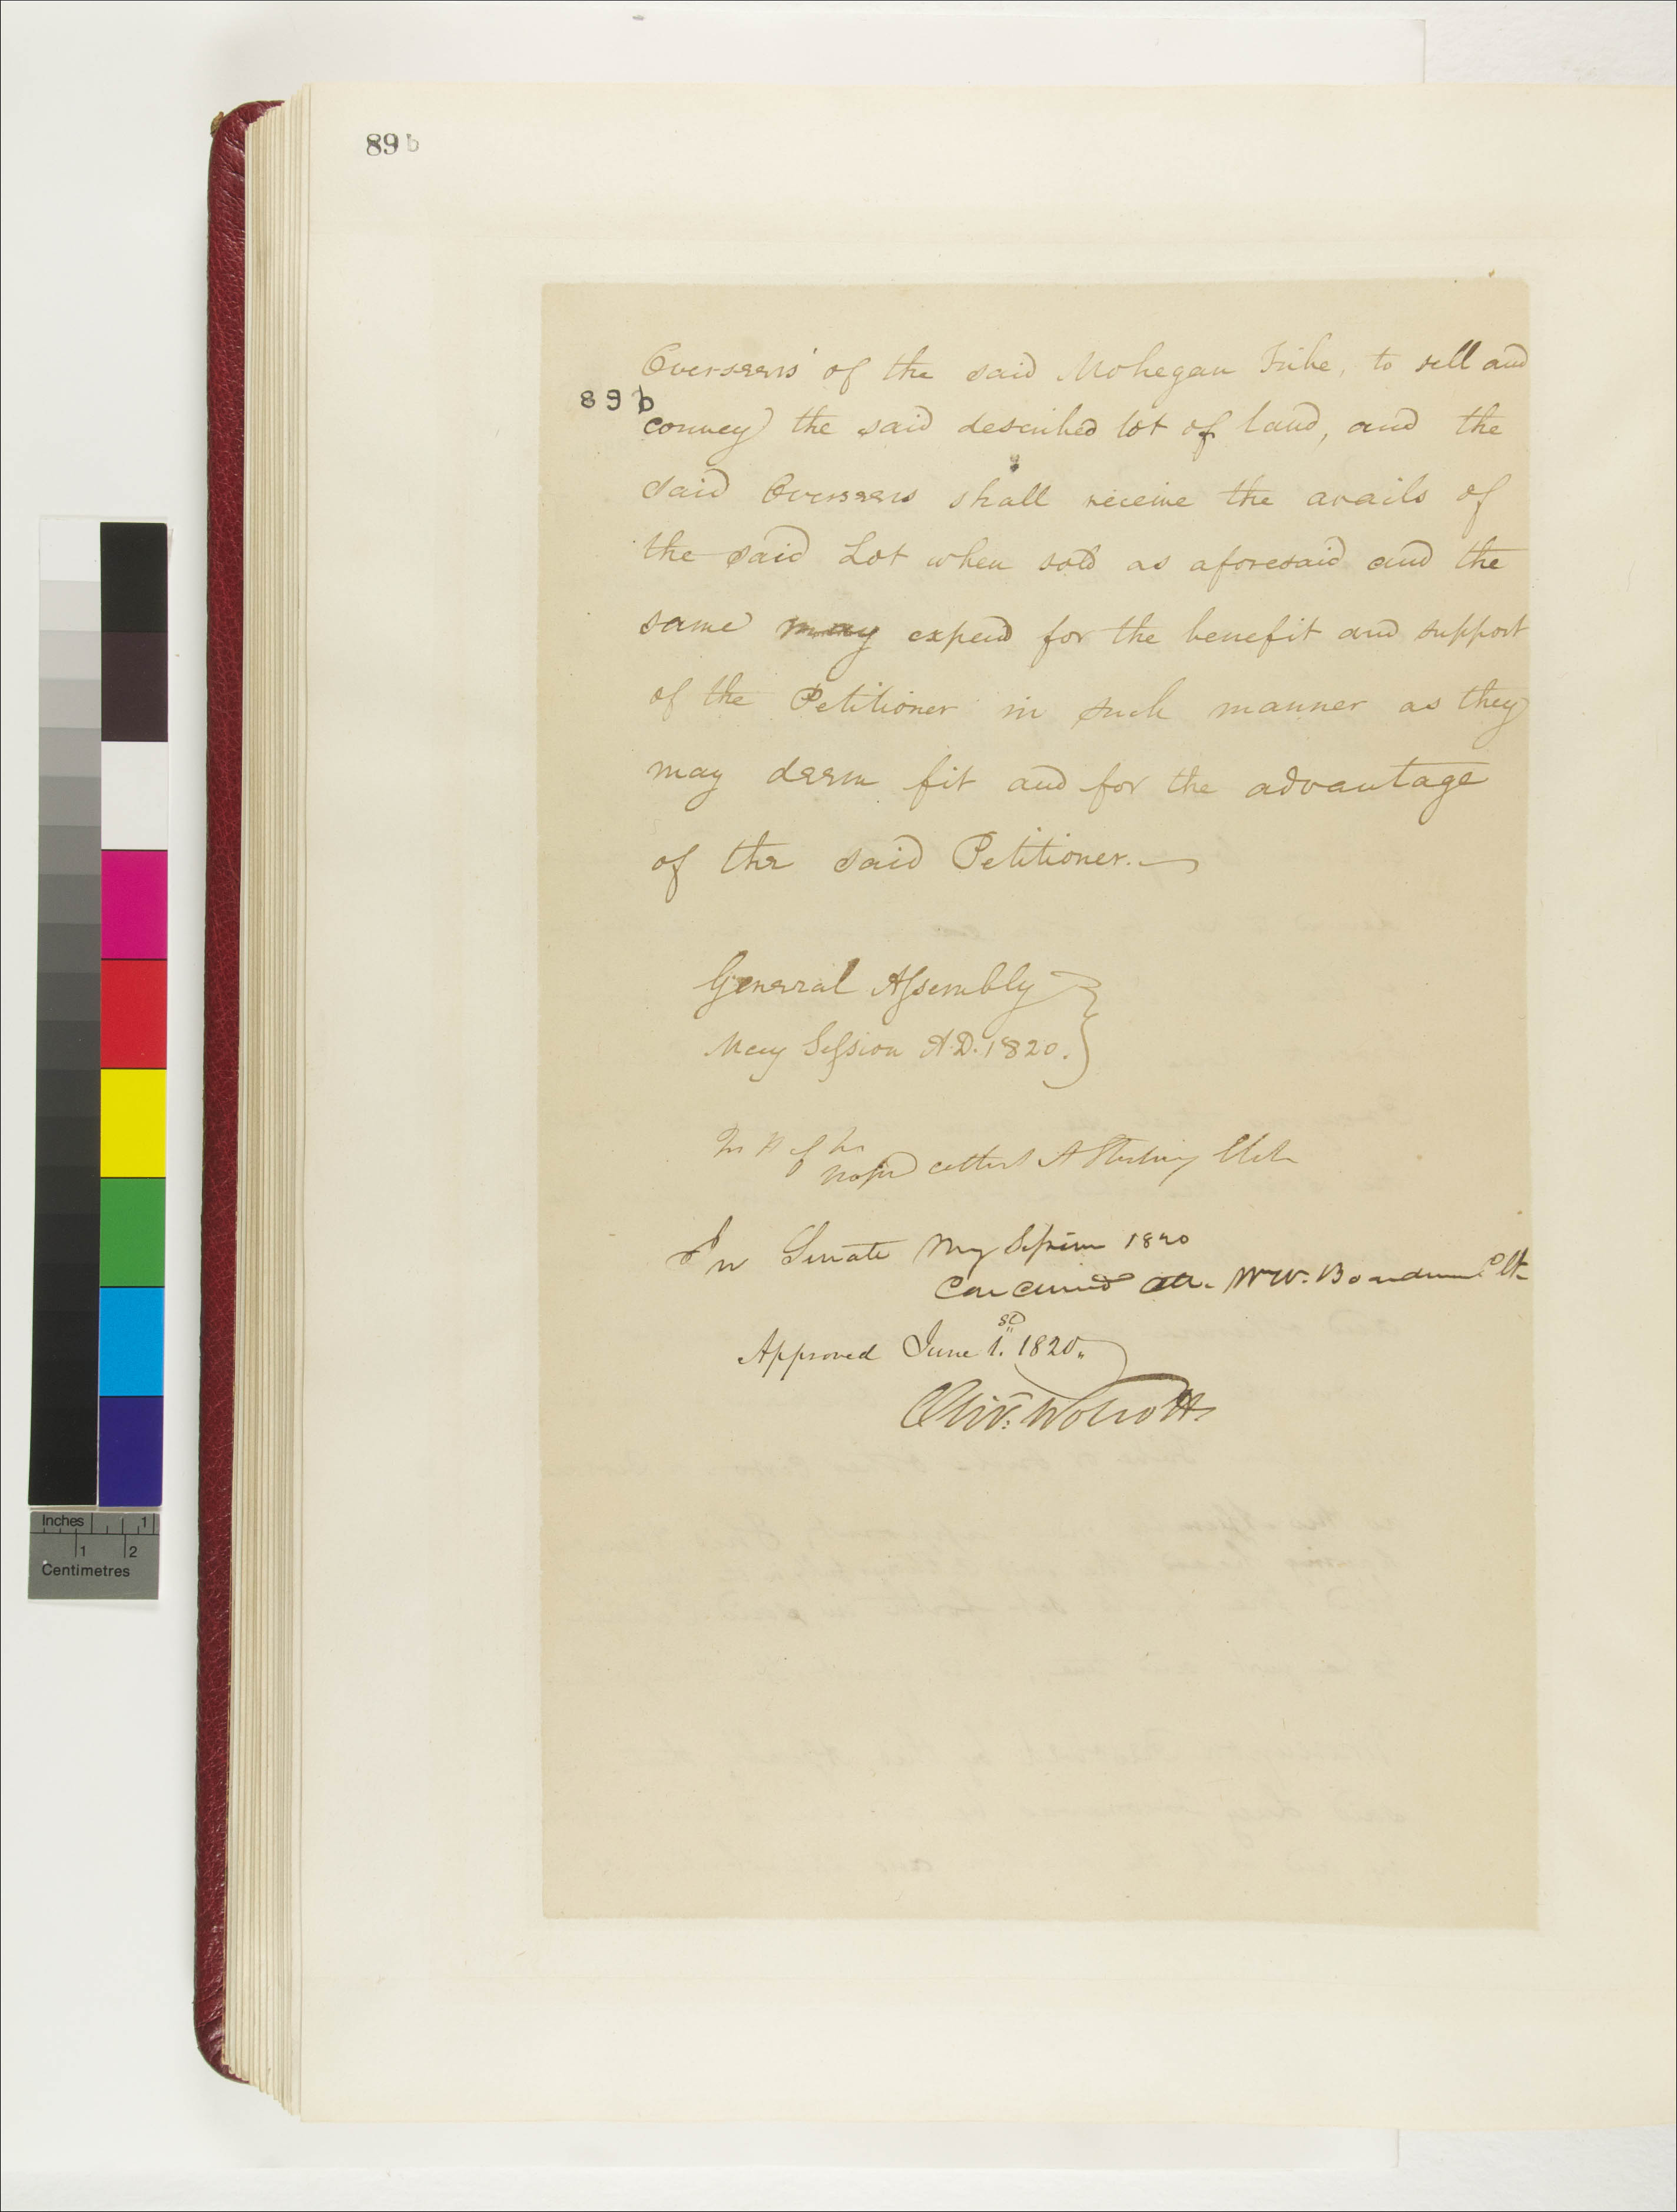 89 b
Overseers of the said Mohegan Tribe, to sell and
89 b
convey the said described lot of land, and the
said Overseers shall receive the avails of
the said Lot when sold as aforesaid and the
same may expend for the benefit and support
of the Petitioner in such manner as they
may deem fit and for the advantage
of the said Petitioner.
General Assembly
May Session A.D. 1820.
In H of
Passed attest A Sterling Clk
In Senate May Session 1820
Concurred att. W W. Boardman Clk
Approved June 1.st 1820.
Oliv. Wolcott
Inches 1
1 2
Centimetres